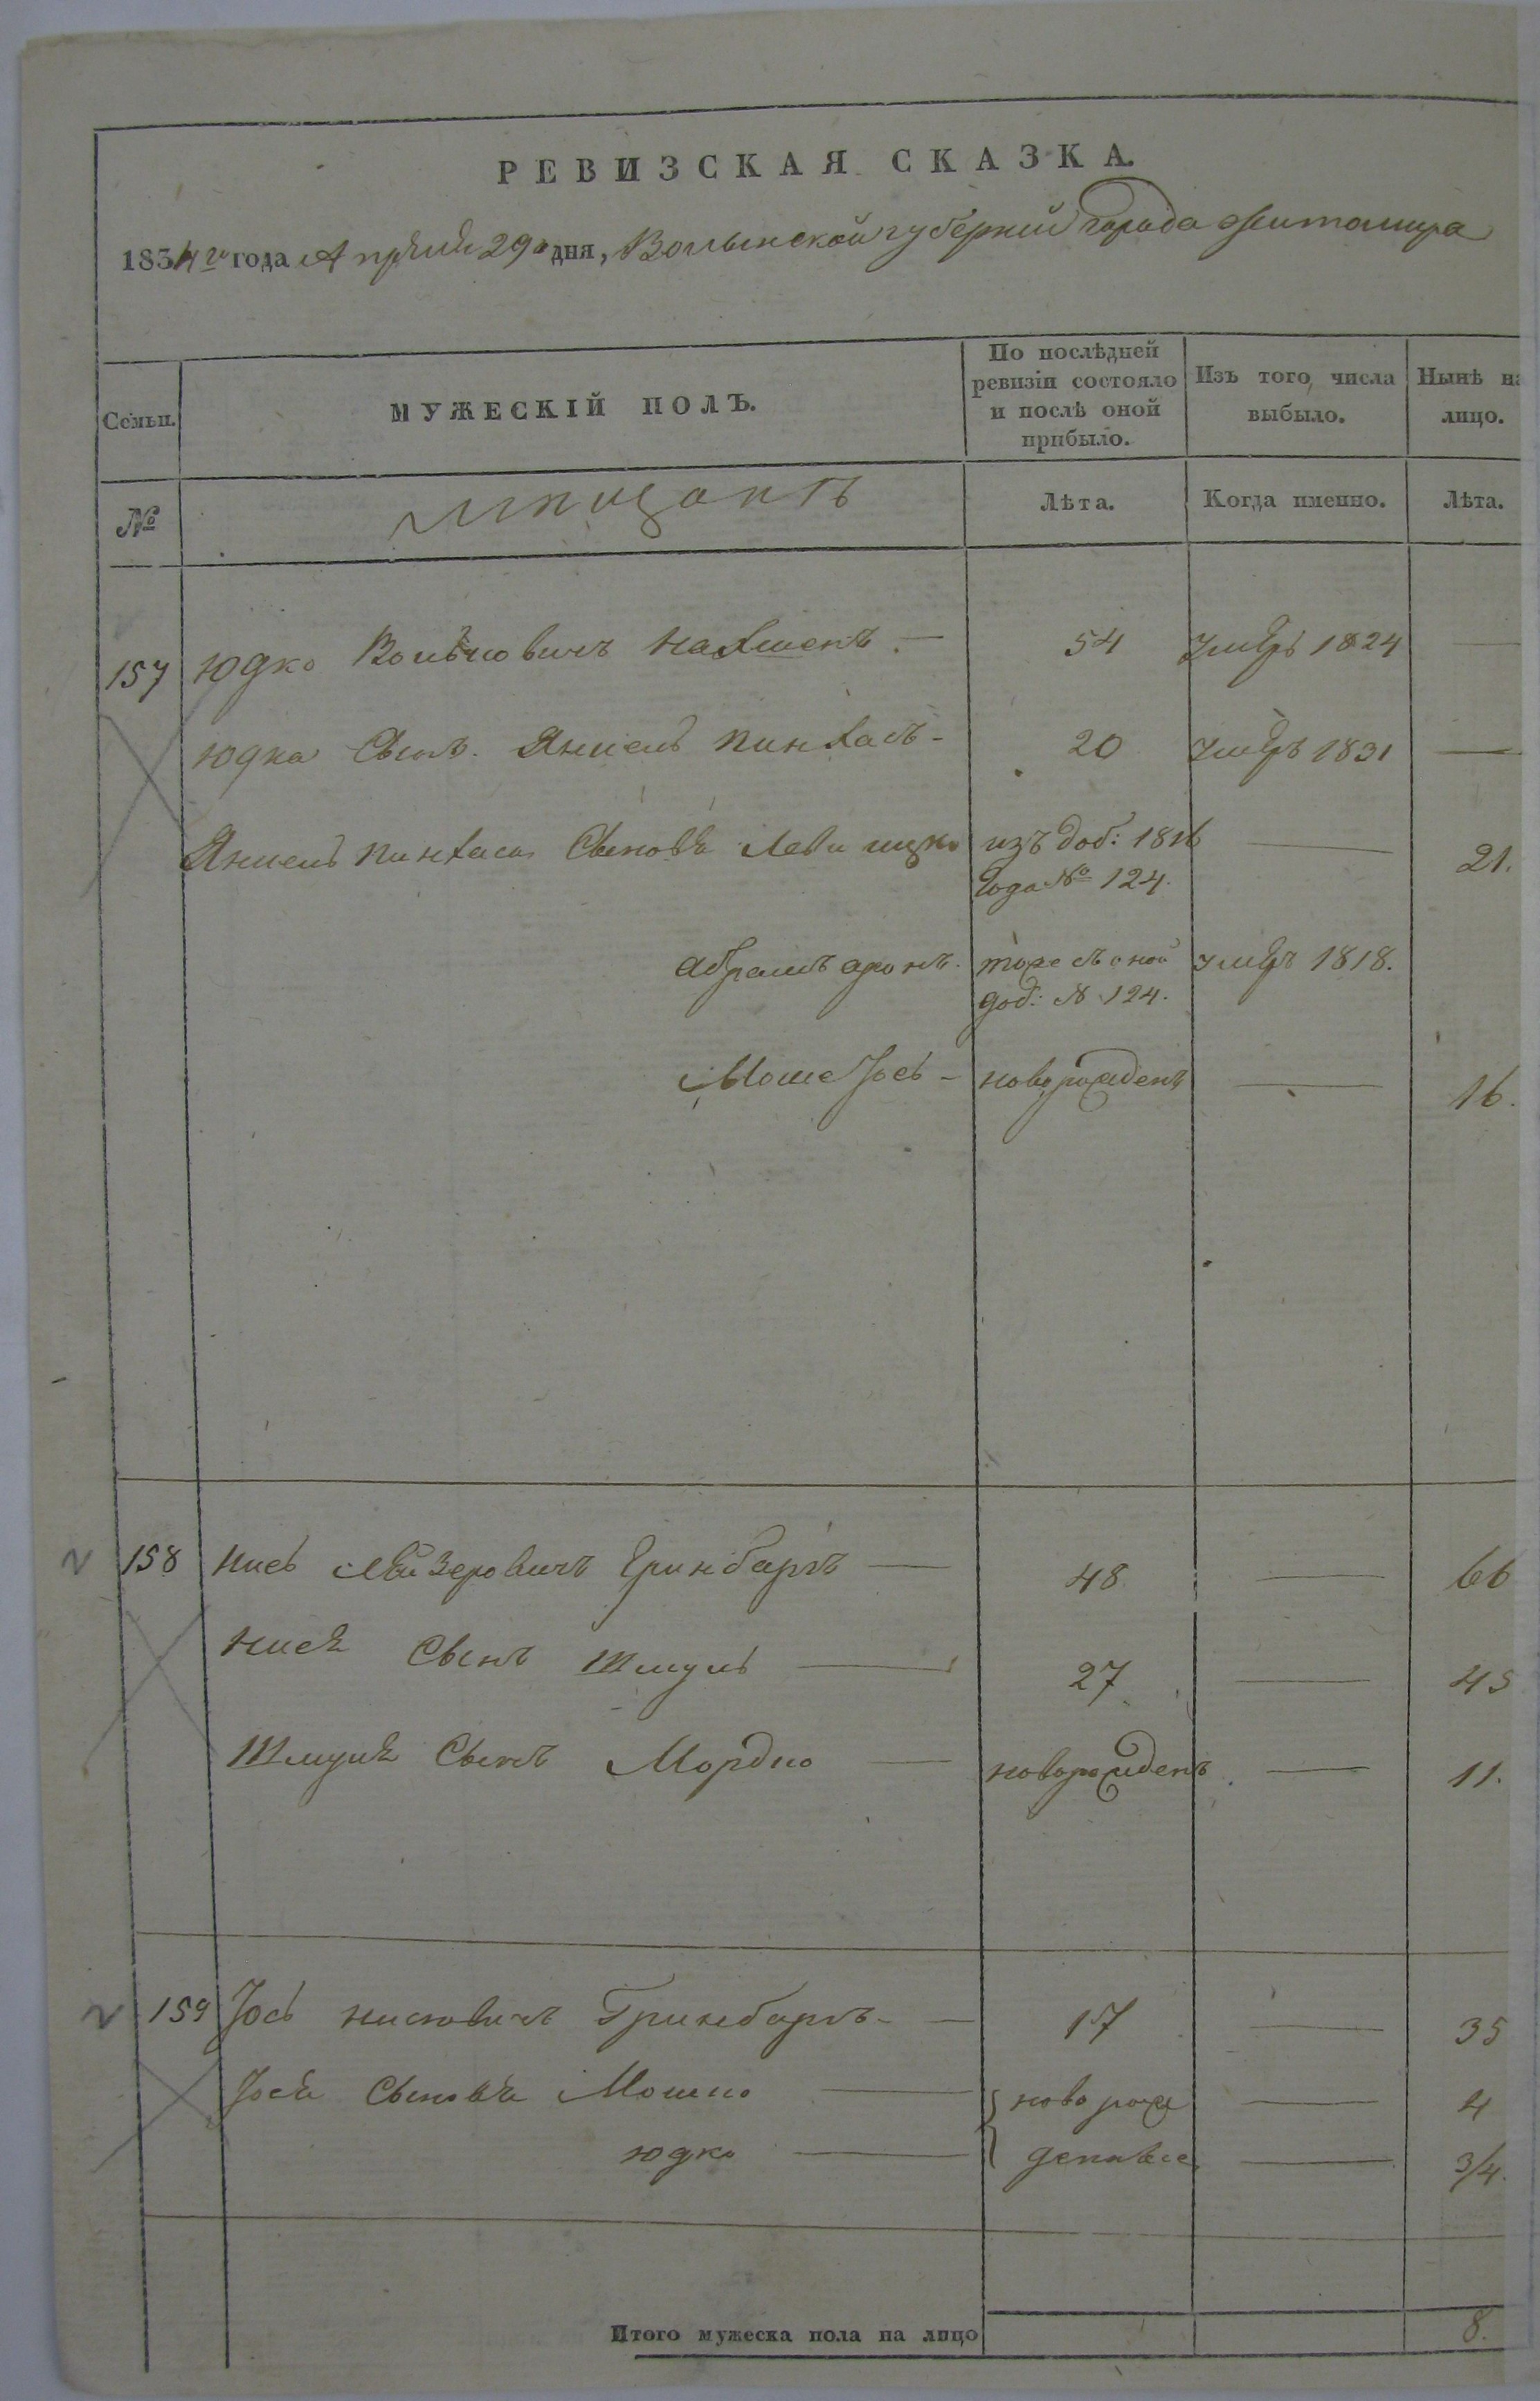 РЕВИЗСКАЯ СКАЗКА.
1834го года Апреля 29 дня, Волынской губернии города Житомира
Семьи. МУЖЕСКІЙ ПОЛЪ. По послѣдней ревизіи состояло и послѣ оной прибыло. Изъ того числа выбыло. Нынѣ на лицо.
№ Лѣта. Когда именно. Лѣта.
157 Юдко Вольковичъ 54 умеръ 1824 —
Юдка Сынъ Янкель Пинхасъ - 20 умеръ 1831 —
Янкель Пинхаса Сыновья Леви Ицко изъ доб: 1816 — 21.
года № 124.
Абрамъ Аронъ - тоже съ оной умеръ 1818.
доб: № 124.
Моше Іось - новорожденъ — 16.
158 Нись Лейзеровичъ Гринбаръ — 48 — 66
Нися Сынъ Шмуль — 27 — 45
Шмуля Сынъ Мордко — новорожденъ — 11.
159 Іось Нисовичъ Гринбаръ - — 17 — 35
Іося Сыновья Мошко — новорож — 4
Юдко — денные — 3/4.
Итого мужеска пола на лицо 8.